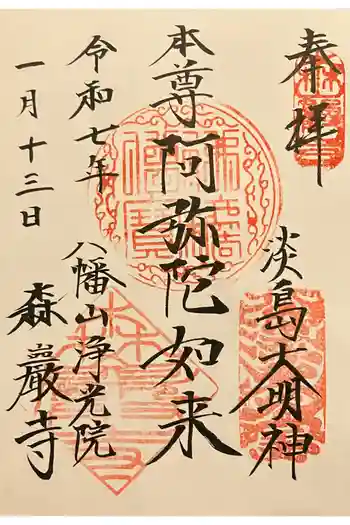 奉拝
淡島大明神
本尊阿弥陀如来
令和七年
一月十三日
八幡山浄光院
森巌寺